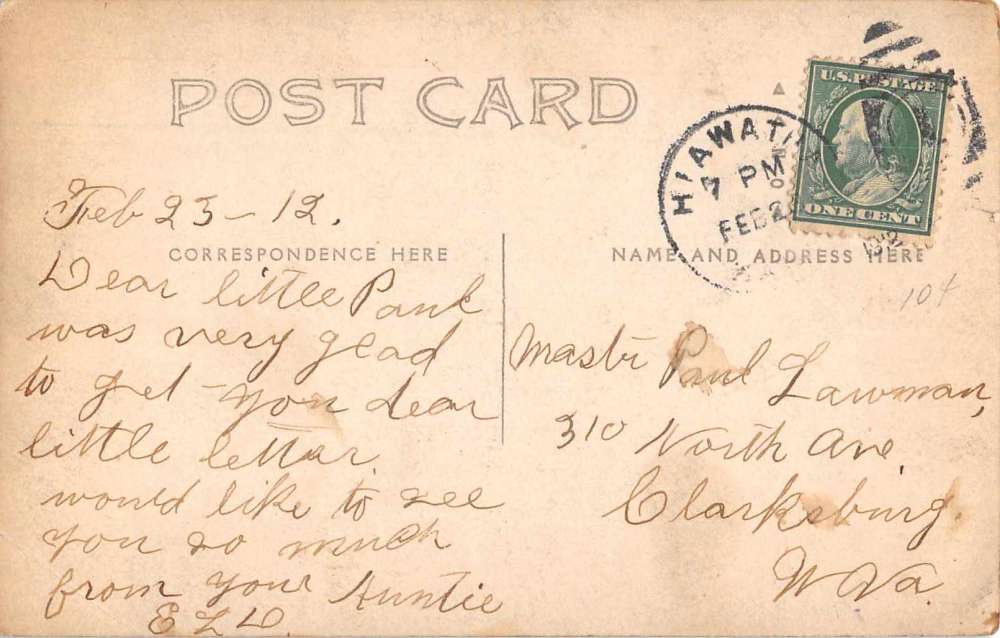 POST CARD
U.S. POSTAGE
ONE CENT
HIAWATHA
7 PM
FEB 2
Feb 23 - 12.
CORRESPONDENCE HERE
Dear little Paul
was very glad
to get you dear
little lettar
would like to see
you so much
from your Auntie
NAME AND ADDRESS HERE
104
Paul Lawman,
310 North Ave,
Clarksburg.
W Va.